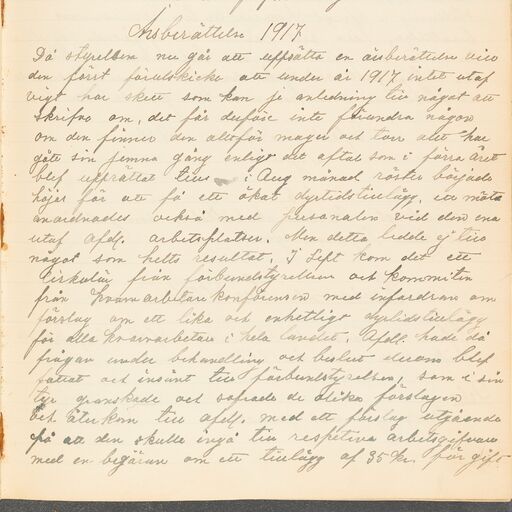 Årsberättelse 1917
Då styrelsen nu går att uppsätta en årsberättelse vill
den först förutskicka att under år 1917 intet utaf
vigt har skett som kan je anledning till något att
skrifva om, det får derför inte förundra någon
om den finner den alltför mager och torr allt har
gått sin jemna gång enligt det aftal som i förra året
blef upprättat tills i Aug månad röster började
höjas för att få ett ökat dyrtidstillägg, ett möte
anordnades också med personalen vid den ena
utaf afdl. arbetsplatser. Men detta ledde ej till
något som helts resultat. I Sept kom det ett
cirkulär från förbundstyrelsen och kommitén
från kvarnarbetare konferensen med infordran om
förslag om ett lika och enhetligt dyrtidstillägg
för alla kvarnarbetare i hela landet. Afdl. hade då
frågan under behandling och beslut derom blef
fattat och insänt till förbundstyrelsen, som i sin
tur granskade och sofrade de olika förslagen
och återkom till afdl. med ett förslag utgående
på att den skulle ingå till respetiva arbetsgifvare
med en begäran om ett tillägg af 35 kr. för gift